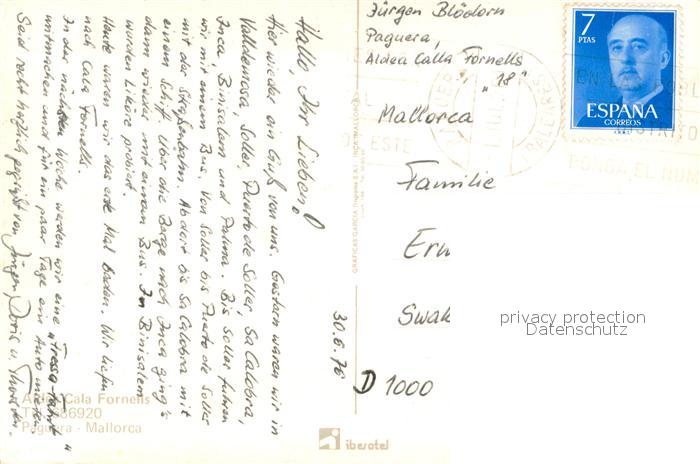 Hallo, Ihr Lieben!
Hier wieder ein Gruß von uns. Gestern waren wir in
Valldemosa, Soller, Puerto de Soller, Sa Calobra,
Inca, Binisalem und Palma. Bis Soller fuhren
wir mit einem Bus. Von Soller bis Puerto de Soller
mit der Straßenbahn. Ab dort bis Sa Calobra mit
einem Schiff. Über die Berge nach Inca ging's
dann wieder mit einem Bus. In Binisalem
wurden Liköre probiert.
Heute waren wir das erste Mal Baden. Wir liefen
nach Cala Fornells.
In der nächsten Woche werden wir eine "Fressfahrt"
mitmachen und für ein paar Tage ein Auto mieten.
Seid recht herzlich gegrüßt von Jürgen, Doris u. Thorsten.
30.6.76
Aldea Cala Fornells
686920
Paguera - Mallorca
GRAFICAS GARCIA
iberotel
Jürgen Blödorn
Paguera,
Aldea Calla Fornells
"18"
Mallorca
7
PTAS
ESPAÑA
CORREOS
PONGA EL NUM
Familie
Erw
Swak
D 1000
privacy protection
Datenschutz